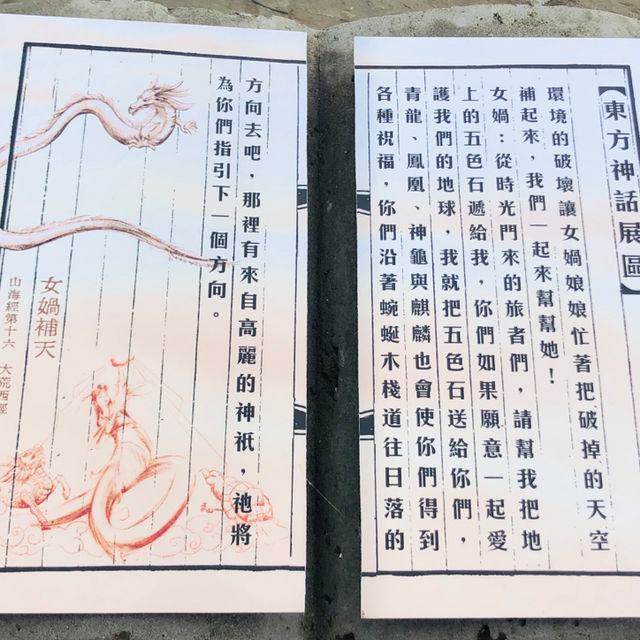 【東方神話展區】
環境的破壞讓女媧娘娘忙著把破掉的天空
補起來，我們一起來幫幫她！
女媧：從時光門來的旅者們，請幫我把地
上的五色石遞給我，你們如果願意一起愛
護我們的地球，我就把五色石送給你們，
青龍、鳳凰、神龜與麒麟也會使你們得到
各種祝福，你們沿著蜿蜒木棧道往日落的
方向去吧，那裡有來自高麗的神祇，祂將
為你們指引下一個方向。
女媧補天
山海經第十六 大荒西經